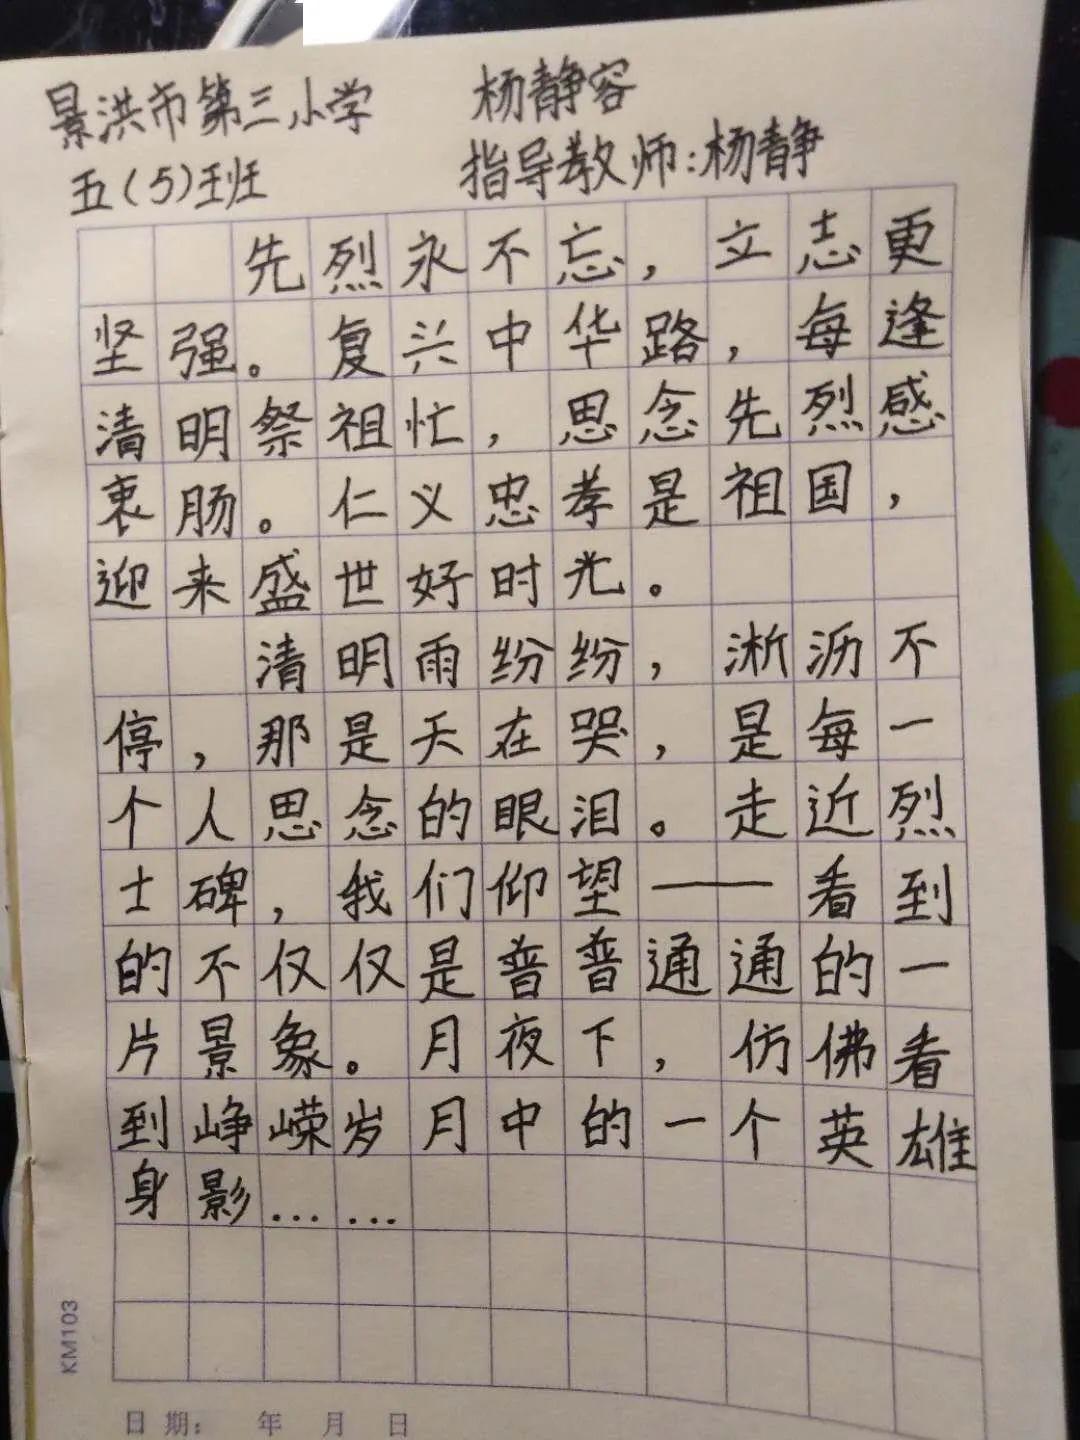 景洪市第三小学 杨静容
五(5)班 指导教师:杨静
先烈永不忘,立志更
坚强。复兴中华路,每逢
清明祭祖忙,思念先烈感
衷肠。仁义忠孝是祖国,
迎来盛世好时光。
清明雨纷纷,淅沥不
停,那是天在哭,是每一
个人思念的眼泪。走近烈
士碑,我们仰望——看到
的不仅仅是普普通通的一
片景象。月夜下,仿佛看
到峥嵘岁月中的一个英雄
身影……
KM103
日期: 年 月 日